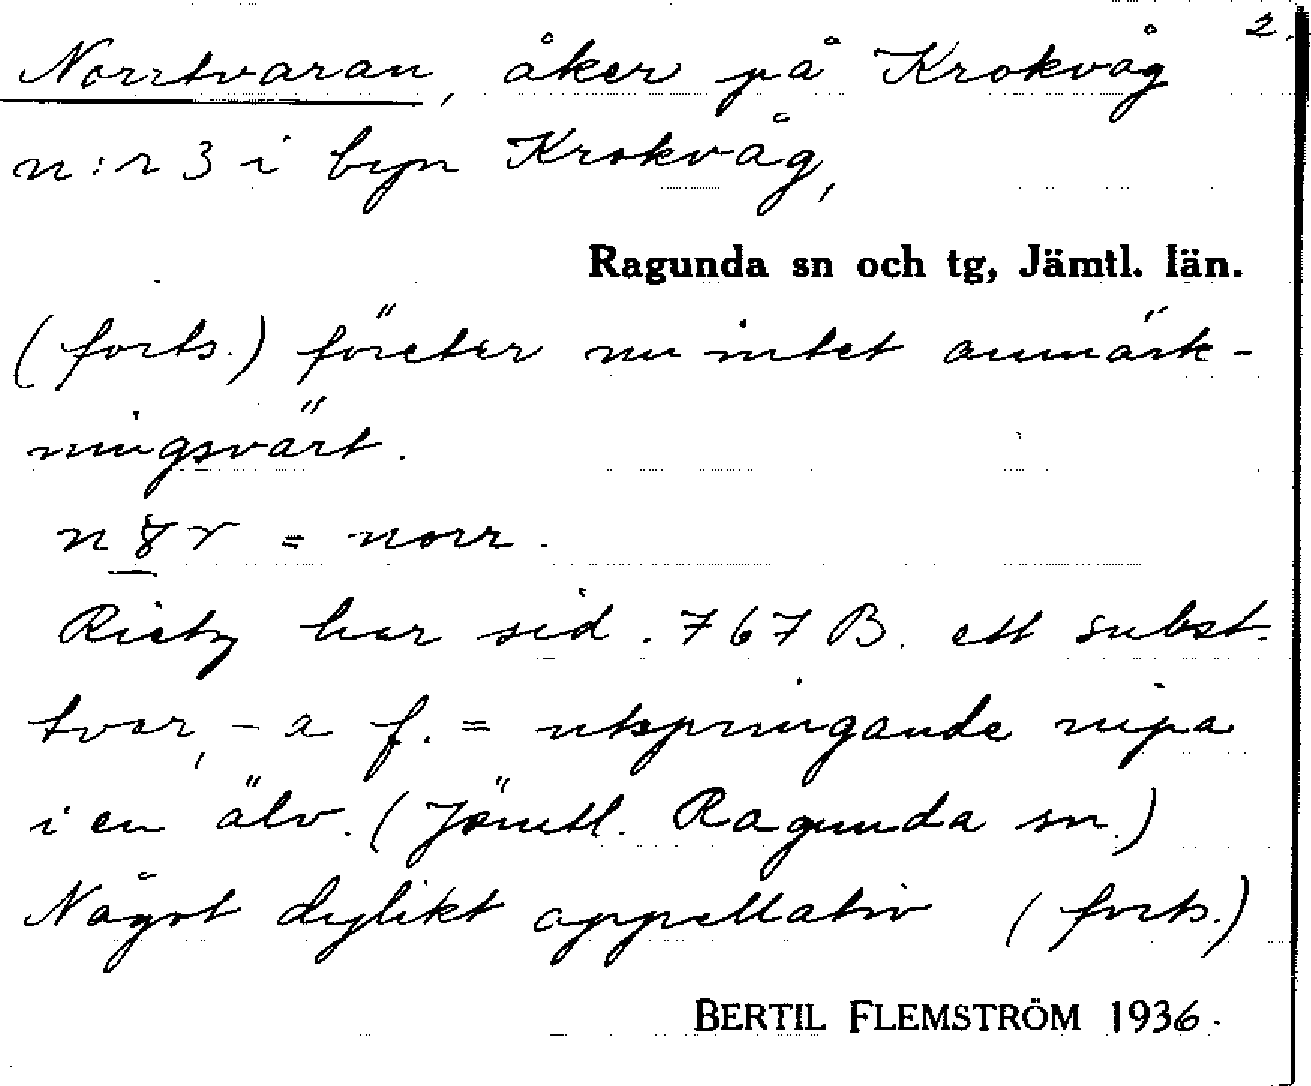 2.
Norrtvaran, åker på Krokvåg
n:r 3 i byn Krokvåg,
Ragunda sn och tg, Jämtl. län.
(forts.) företer nu intet anmärk-
ningsvärt.
= norr.
Rietz har sid. 767 B. ett subst.
tvar, -a f. = utspringande nipa
i en älv. (Jämtl. Ragunda sn.)
Något dylikt appellativ (forts.)
BERTIL FLEMSTRÖM 1936.